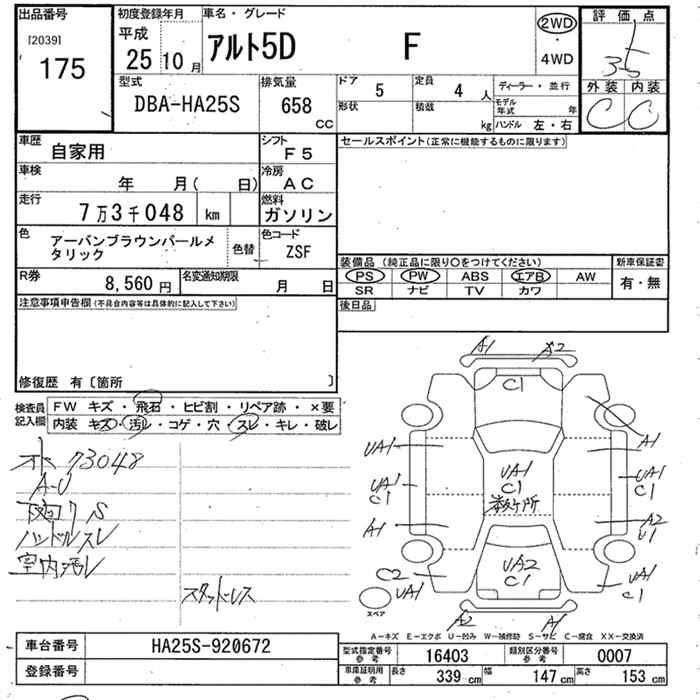 出品番号
[2039]
175
初度登録年月
平成
25 10 月
車名・グレード
アルト5D F
2WD
4WD
評価点
3.5
外装 内装
C C
型式
DBA-HA25S
排気量
658 CC
ドア 5
定員 4 人
形状
積載 kg
ディーラー・並行
モデル年式 年
ハンドル 左・右
車歴
自家用
シフト
F5
車検
年 月( 日)
冷房
AC
走行
7万3千048 km
燃料
ガソリン
色
アーバンブラウンパールメ
タリック
色替
色コード
ZSF
R券
8,560 円
名変通知期限
月 日
セールスポイント(正常に機能するものに限ります)
装備品 (純正品に限り○をつけてください)
PS PW ABS エアB AW
SR ナビ TV カワ
新車保証書
有・無
後日品
注意事項申告欄(不具合内容等は具体的に記入して下さい)
修復歴 有〔箇所 〕
検査員
記入欄
FW キズ・飛石・ヒビ割・リペア跡・×要
内装 キズ・汚レ・コゲ・穴・スレ・キレ・破レ
オト 73048
A-U
下回りS
ハンドルスレ
室内汚レ
スタッドレス
A1 A2
C1
UA1 A1
UA1
C1
UA1
C1
UA1
C1
A1 A2
U1
C2
UA1
UA2
C1
UA1
C1
スペア
A2 A1
A-キズ E-エクボ U-凹み W-補修跡 S-サビ C-腐食 XX-交換済
車台番号
HA25S-920672
登録番号
型式指定番号
参考
16403
類別区分番号
参考
0007
車庫証明用
参考
長さ 339 cm 幅 147 cm 高さ 153 cm